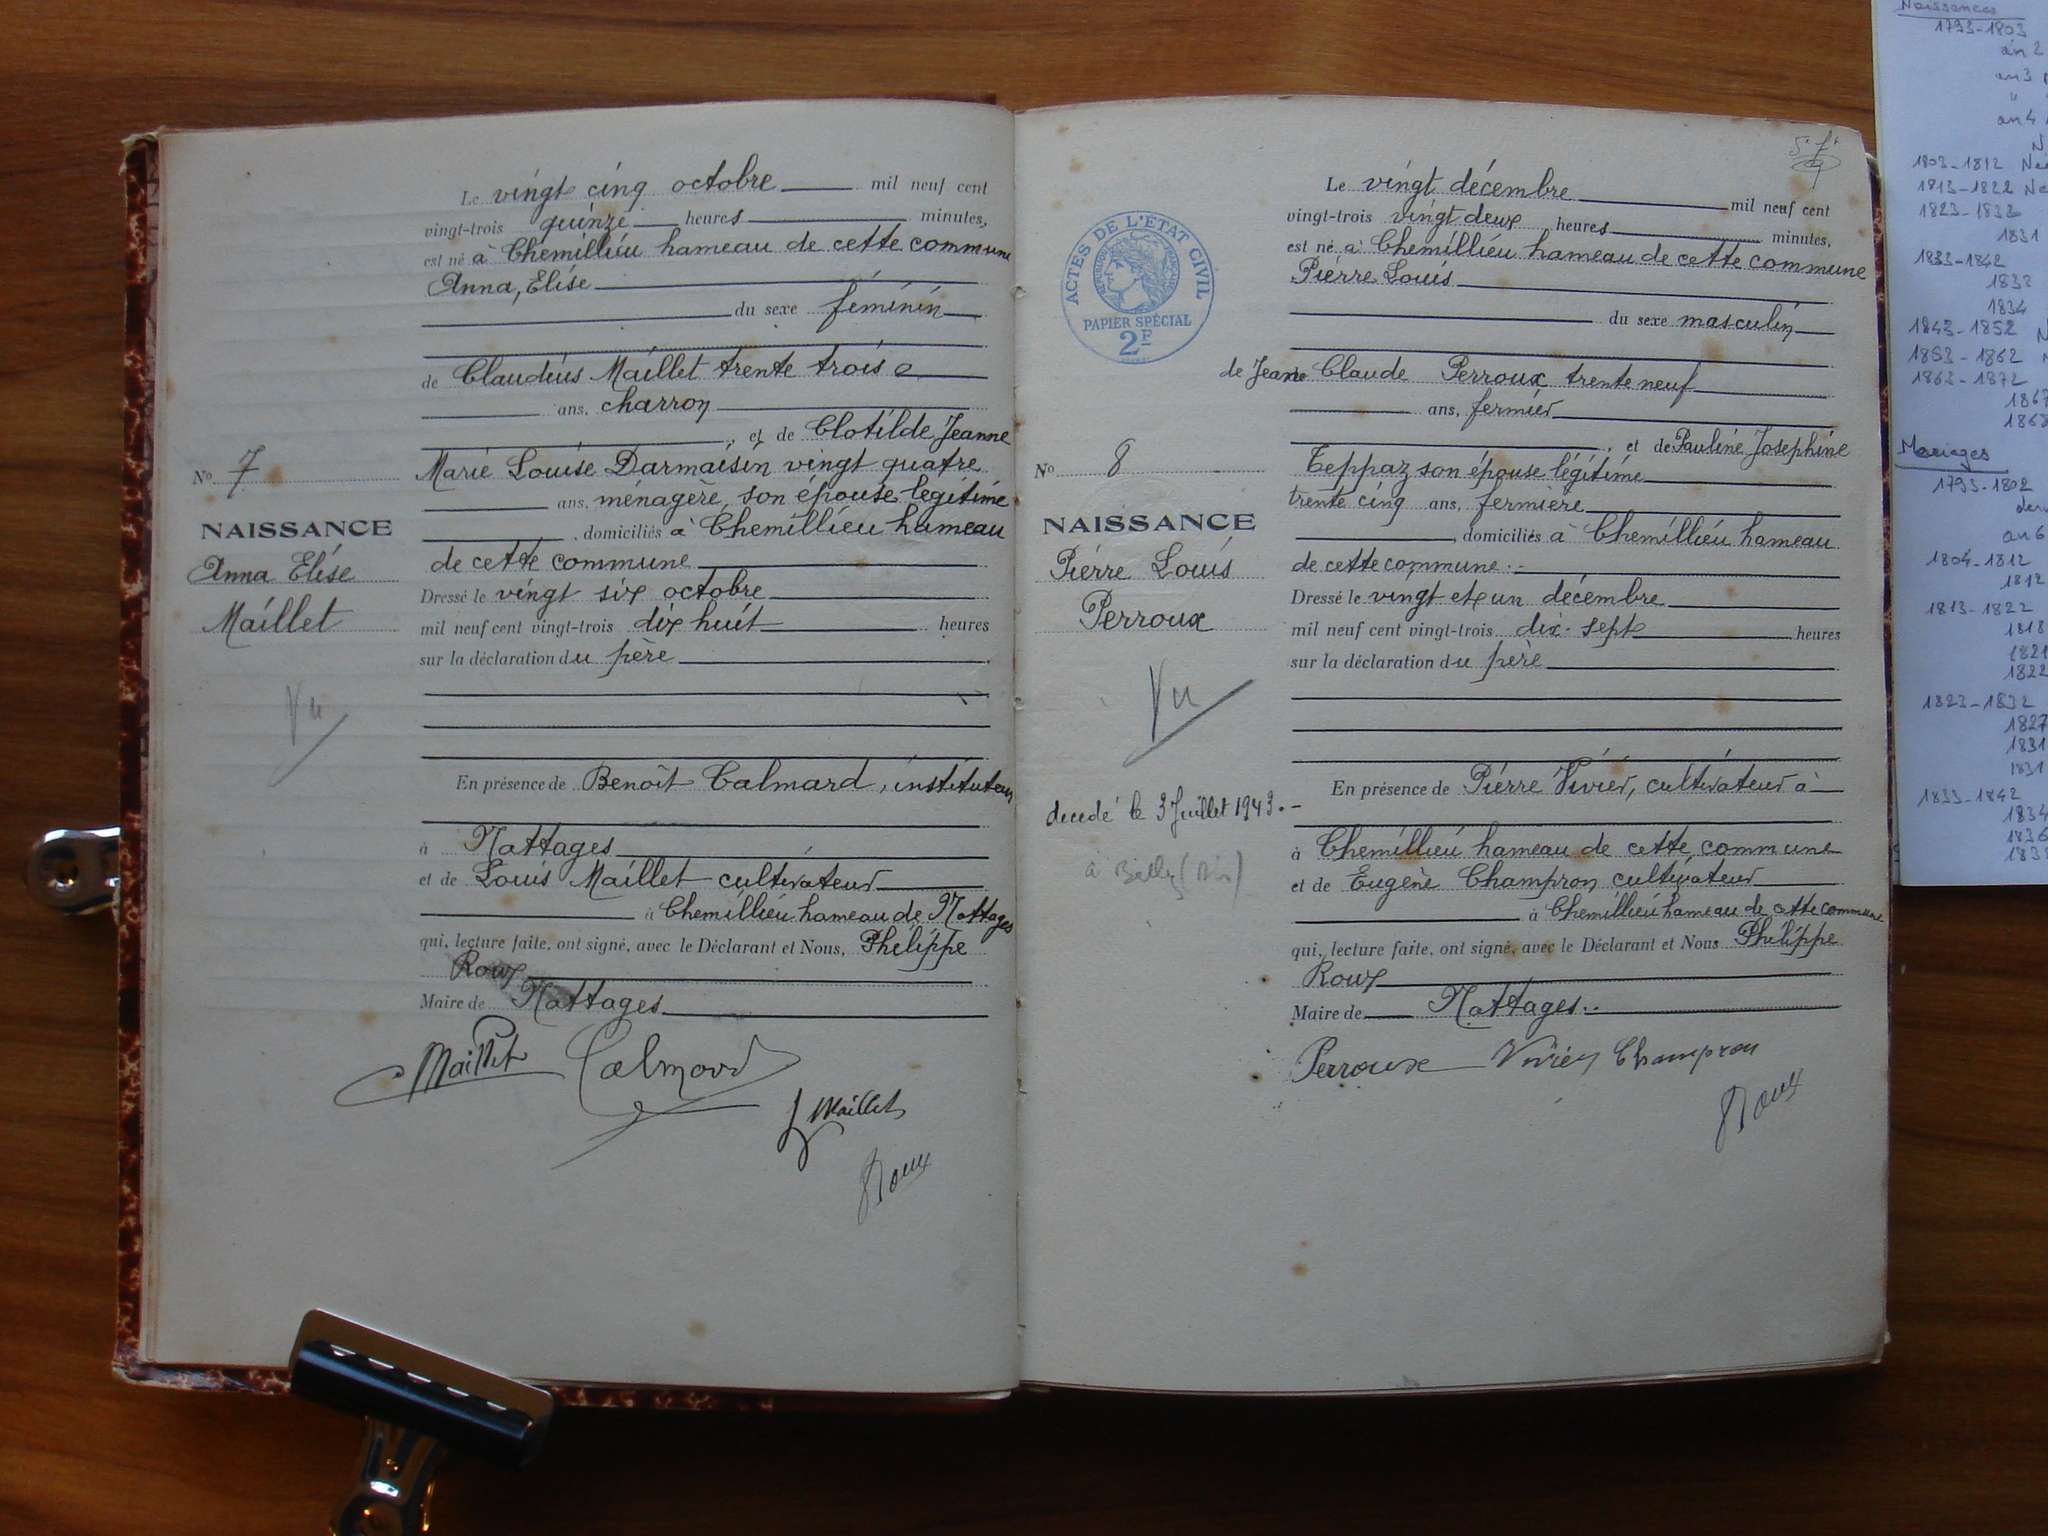 Le vingt cinq octobre mil neuf cent
vingt-trois quinze heures minutes,
est né à Chemillieu hameau de cette commune
Anna, Elise
du sexe féminin
de Claudius Maillet trente trois
ans, charron
, et de Clotilde Jeanne
Marie Louise Darmaisin vingt quatre
ans, ménagère, son épouse légitime
, domiciliés à Chemillieu hameau
de cette commune
Dressé le vingt six octobre
mil neuf cent vingt-trois dix huit heures
sur la déclaration du père
En présence de Benoît Calmard, instituteur
à Nattages
et de Louis Maillet cultivateur
à Chemillieu hameau de Nattages
qui, lecture faite, ont signé, avec le Déclarant et Nous, Philippe
Roux
Maire de Nattages
Maillet Calmard
L Maillet
Roux
No 7
NAISSANCE
Anna Elise
Maillet
Vu
Le vingt décembre mil neuf cent
vingt-trois vingt deux heures minutes,
est né à Chemillieu hameau de cette commune
Pierre Louis
du sexe masculin
de Jean Claude Perroux trente neuf
ans, fermier
, et de Pauline Josephine
Teppaz son épouse légitime
trente cinq ans, fermière
, domiciliés à Chemillieu hameau
de cette commune.
Dressé le vingt et un décembre
mil neuf cent vingt-trois dix-sept heures
sur la déclaration du père
En présence de Pierre Vivier, cultivateur à
à Chemillieu hameau de cette commune
et de Eugène Champron cultivateur
à Chemillieu hameau de cette commune
qui, lecture faite, ont signé, avec le Déclarant et Nous Philippe
Roux
Maire de Nattages.
Perroux Vivier Champron
Roux
ACTES DE L'ETAT CIVIL
PAPIER SPÉCIAL
2F
No 8
NAISSANCE
Pierre Louis
Perroux
Vu
decedé le 3 Juillet 1943.
Naissances
1793-1803
an 2
an 3
"
an 4
1803-1812
1813-1822
1823-1832
1831
1833-1842
1832
1834
1843-1852
1853-1862
1863-1872
1867
1868
Mariages
1793-1802
an 6
1804-1812
1812
1813-1822
1818
1821
1822
1823-1832
1827
1831
1831
1833-1842
1834
1836